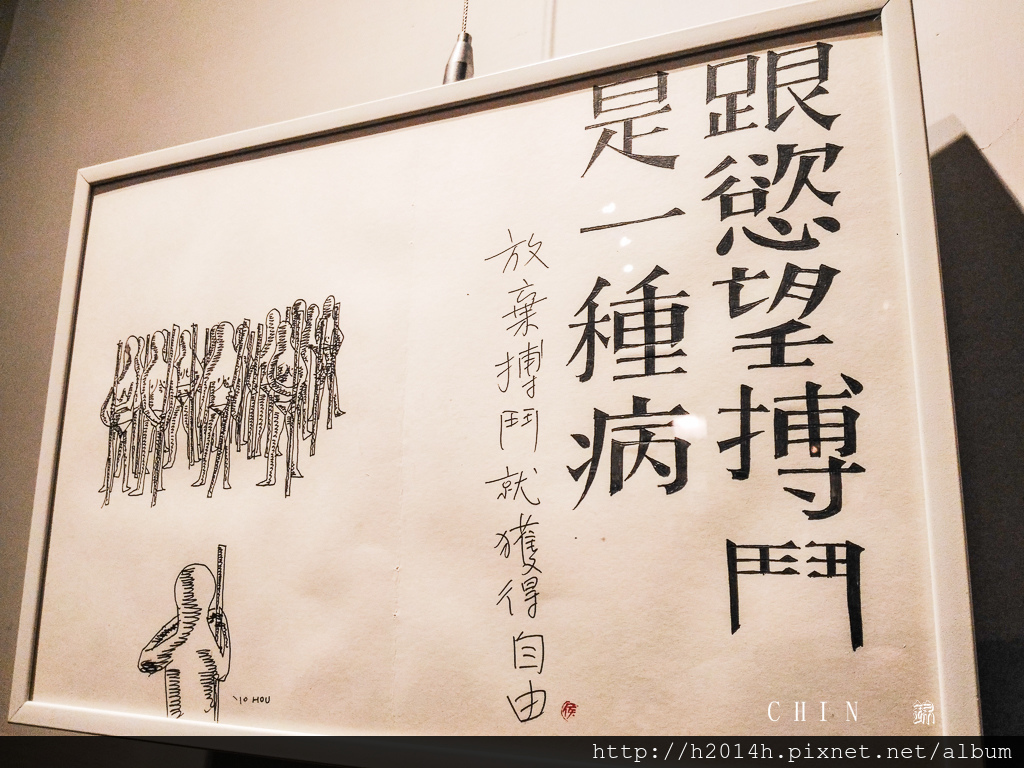 跟慾望搏鬥
是一種病
放棄搏鬥就獲得自由
'10 HOU
侯
CHIN
http://h2014h.pixnet.net/album